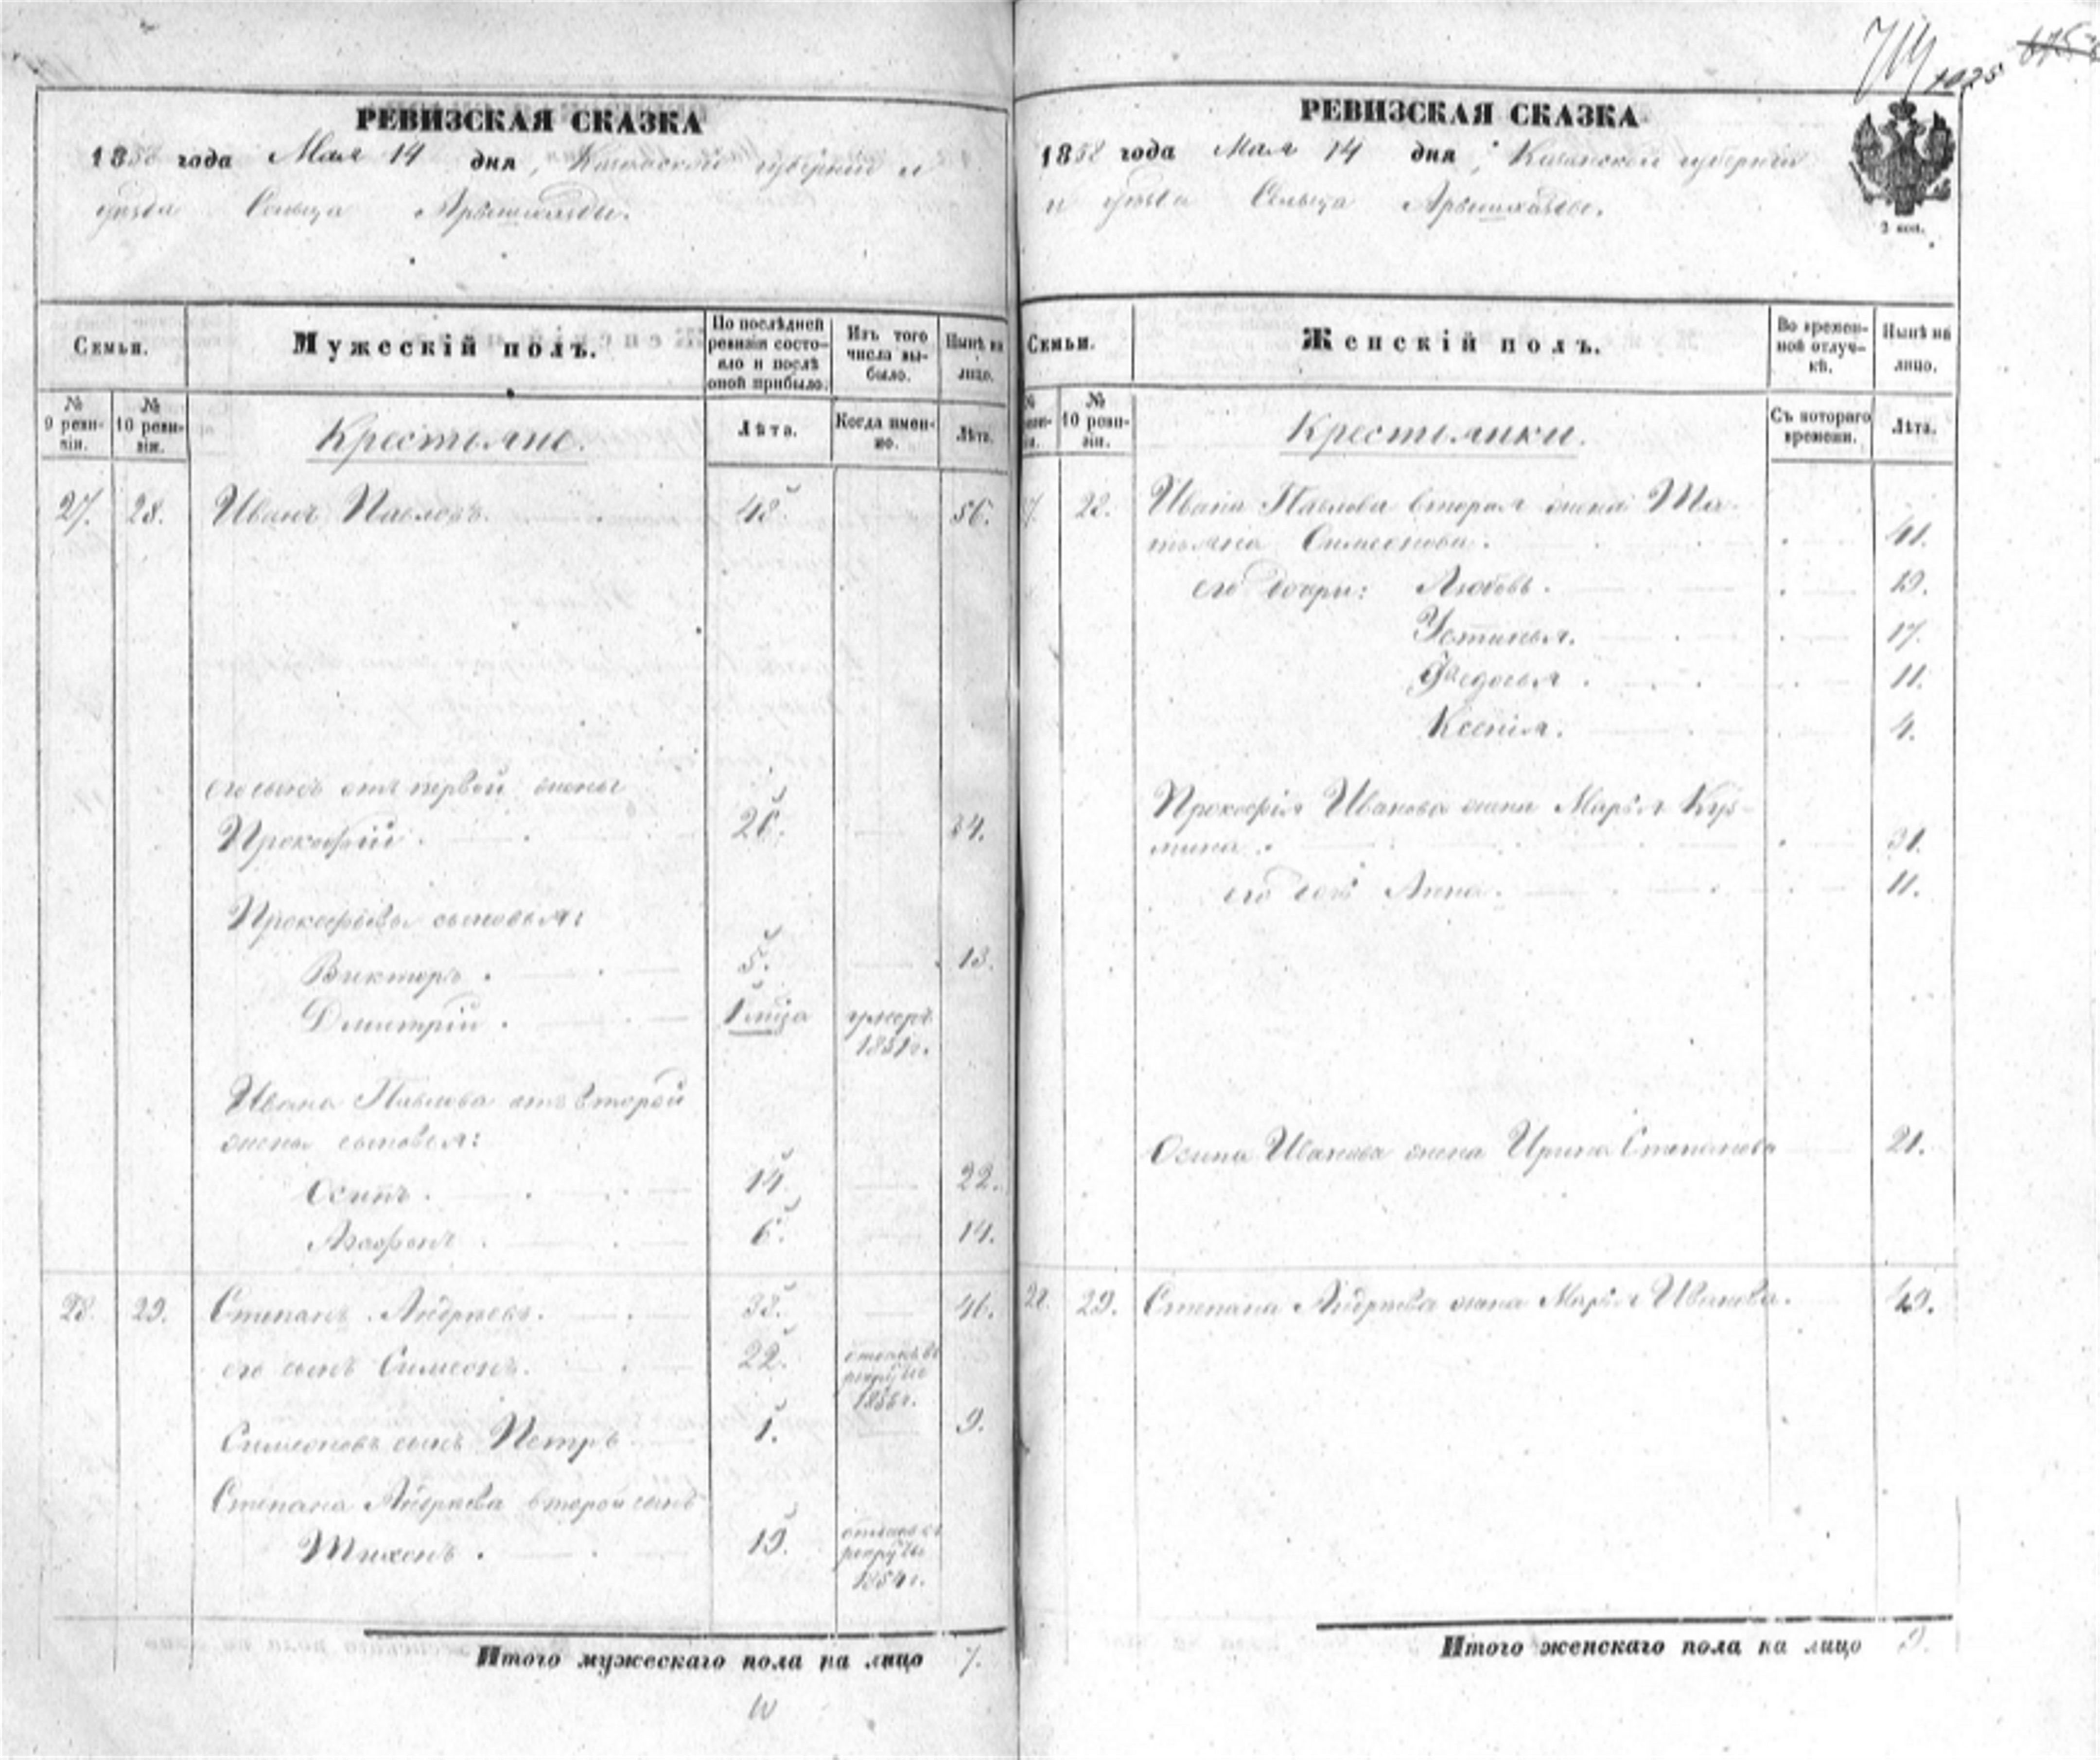 714 1025
РЕВИЗСКАЯ СКАЗКА
1858 года Мая 14 дня, Казанской губерніи и
уезда Сельца
Семьи.
Мужескій полъ.
По послѣдней ревизіи состояло и послѣ оной прибыло.
Изъ того числа выбыло.
Нынѣ на лицо.
№ 9 ревизіи.
№ 10 ревизіи.
Крестьяне.
Лѣта.
Когда именно.
Лѣта.
27. 28. Иванъ Павловъ. 48. 56.
его сынъ отъ первой жены
Прокофій. 26. 34.
Прокофьевы сыновья:
Викторъ. 5. 13.
Дмитрій. 1 мца умеръ
1851 г.
Ивана Павлова отъ второй
жены сыновья:
Осипъ. 14. 22.
Агафонъ. 6. 14.
28. 29. Степанъ Андреевъ. 38. 46.
его сынъ Симеонъ. 22. отданъ въ
рекруты
1855 г.
Симеоновъ сынъ Петръ 1. 9.
Степана Андреева второй сынъ
Тихонъ. 19. отданъ въ
рекруты
1854 г.
Итого мужескаго пола на лицо 7.
РЕВИЗСКАЯ СКАЗКА
1858 года Мая 14 дня, Казанской губерніи
и уезда Сельца
2 коп.
Семьи.
Женскій полъ.
Во временной отлучкѣ.
Нынѣ на лицо.
№ 10 ревизіи.
Крестьянки.
Съ котораго времени.
Лѣта.
7. 28. Ивана Павлова вторая жена Та-
тьяна Симеонова. 41.
его дочри: Любовь. 19.
Устинья. 17.
Федосья. 11.
Ксенія. 4.
Прокофія Иванова жена Марья Кузь-
мина. 31.
его дочь Анна. 11.
Осипа Иванова жена Ирина Степанова 21.
28. 29. Степана Андреева жена Марья Иванова. 49.
Итого женскаго пола на лицо 9.